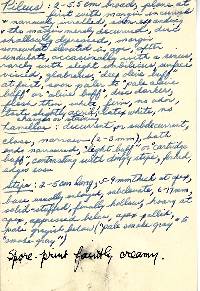 Pileus: 2-5.5 cm broad, plane at
first with margin incurved
narrowly inrolled, when expanding
the margin merely decurved, disc
shallowly depressed, margin
somewhat elevated in age, often
undulate, occasionally with a
rarely with slight umbo,
viscid, glabrous, "deep olive buff"
at first, soon pale to "pale olive
buff" or "olive buff", disc darker,
flesh thin white, firm, no odor,
taste slightly acrid, latex white, no
changes
Lamellae: decurrent or subdecurrent,
close, narrow (2-3 mm), both
ends narrowed, "light buff" or "cartridge
buff", contrasting with dingy stipe, forked,
edges even
Stipe: 2-5 cm long, 5-9 mm thick at apex,
base usually enlarged, subclavate, 6-17 mm,
solid-stuffed, finally hollow, hoary at
apex, appressed below, apex
pale grayish below ("pale smoke gray" to
"smoke gray")
Spore-print faintly creamy.